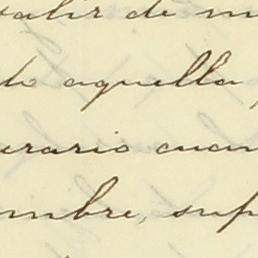 valir de m
do aquella
erario cuan
mbre, sup